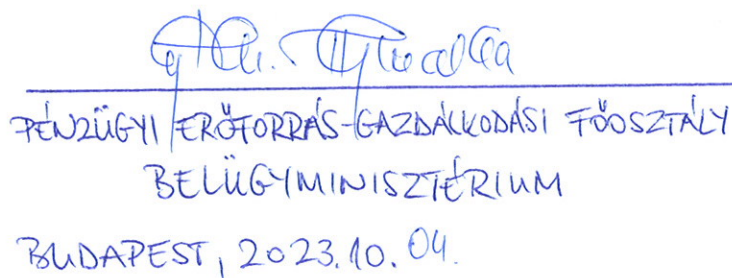 PÉNZÜGYI ERŐFORRÁS-GAZDÁLKODÁSI FŐOSZTÁLY
BELÜGYMINISZTÉRIUM
BUDAPEST, 2023.10.04.